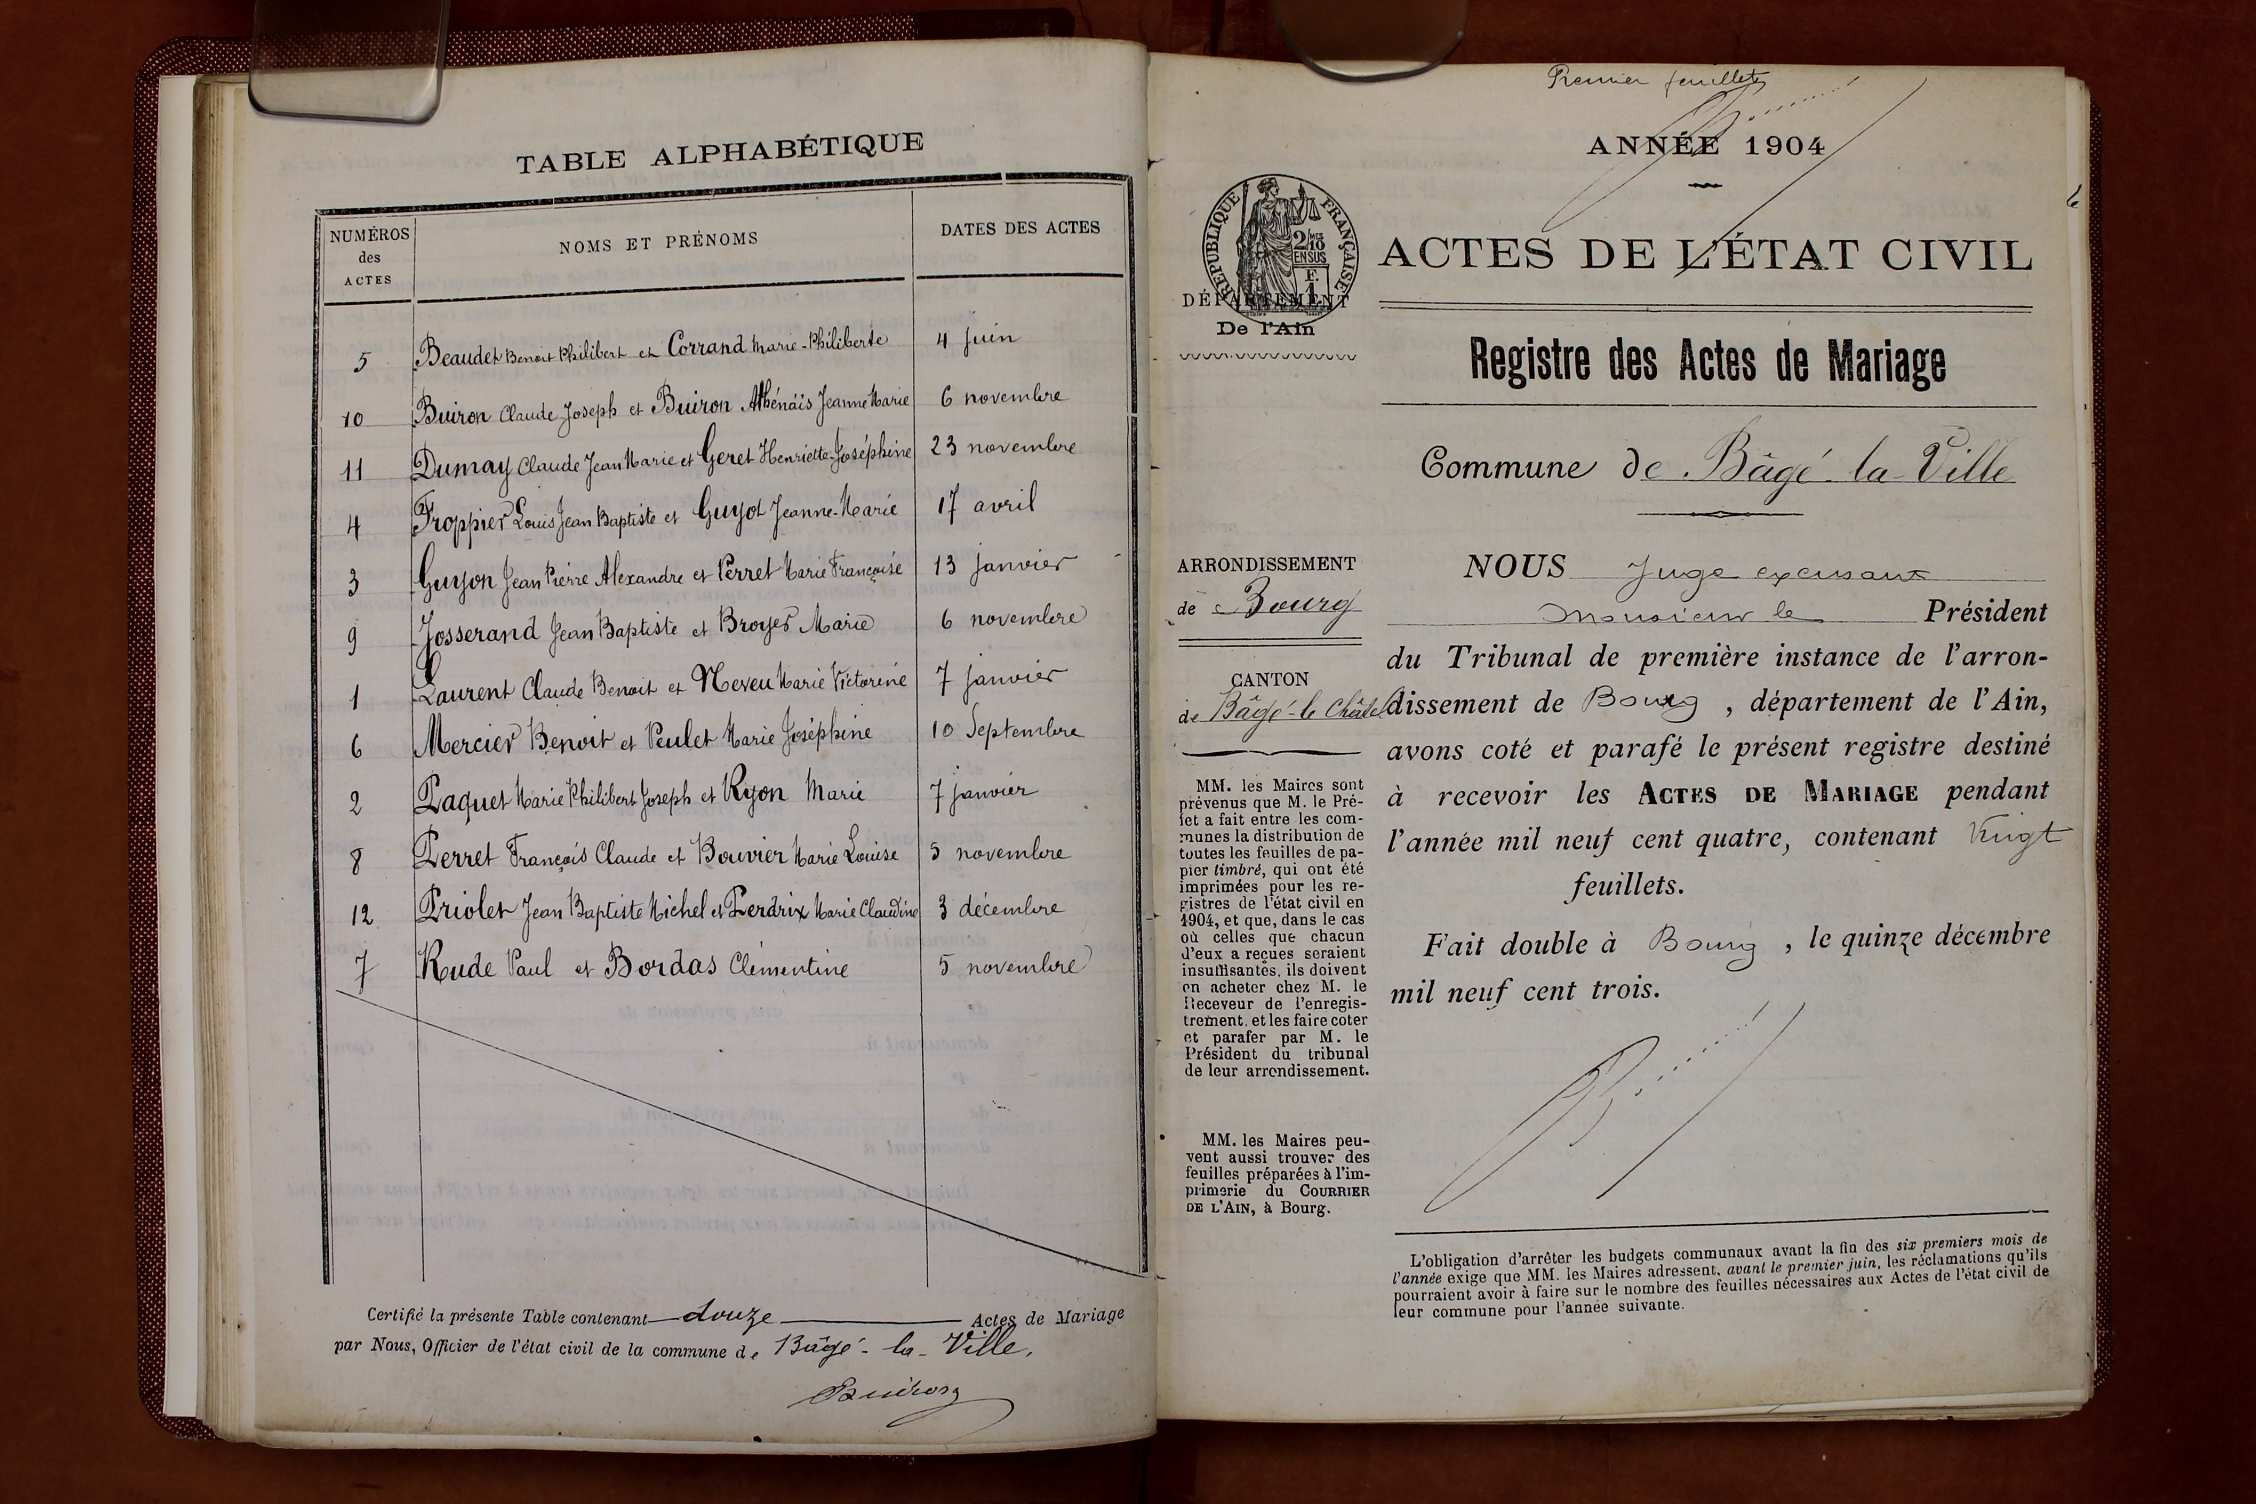 TABLE ALPHABÉTIQUE
NUMÉROS des ACTES NOMS ET PRÉNOMS DATES DES ACTES
5 Beaudet Benoit Philibert et Corrand Marie-Philiberte 4 juin
10 Buiron Claude Joseph et Buiron Athénaïs Jeanne Marie 6 novembre
11 Dumay Claude Jean Marie et Geret Henriette-Joséphine 23 novembre
4 Froppier Louis Jean Baptiste et Guyot Jeanne-Marie 17 avril
3 Guyon Jean Pierre Alexandre et Perret Marie Françoise 13 janvier
9 Josserand Jean Baptiste et Broyer Marie 6 novembre
1 Laurent Claude Benoit et Neveu Marie Victorine 7 janvier
6 Mercier Benoit et Peulet Marie Joséphine 10 Septembre
2 Paquet Marie Philibert Joseph et Ryon Marie 7 janvier
8 Perret François Claude et Bouvier Marie Louise 5 novembre
12 Priolet Jean Baptiste Michel et Perdrix Marie Claudine 3 décembre
7 Rude Paul et Bordas Clémentine 5 novembre
Certifié la présente Table contenant douze Actes de Mariage
par Nous, Officier de l'état civil de la commune de Bâgé-la-Ville.
Buiron
Premier feuillet
ANNÉE 1904
RÉPUBLIQUE FRANÇAISE
2/10 EN SUS
F. 1
ACTES DE L'ÉTAT CIVIL
DÉPARTEMENT
De l'Ain
Registre des Actes de Mariage
Commune de Bâgé-la-Ville
ARRONDISSEMENT
de Bourg
CANTON
de Bâgé-le Châtel
MM. les Maires sont
prévenus que M. le Pré-
fet a fait entre les com-
munes la distribution de
toutes les feuilles de pa-
pier timbré, qui ont été
imprimées pour les re-
gistres de l'état civil en
1904, et que, dans le cas
où celles que chacun
d'eux a reçues seraient
insuffisantes, ils doivent
en acheter chez M. le
Receveur de l'enregis-
trement, et les faire coter
et parafer par M. le
Président du tribunal
de leur arrondissement.
MM. les Maires peu-
vent aussi trouver des
feuilles préparées à l'im-
primerie du COURRIER
DE L'AIN, à Bourg.
NOUS Juge excusant
Monsieur le Président
du Tribunal de première instance de l'arron-
dissement de Bourg , département de l'Ain,
avons coté et parafé le présent registre destiné
à recevoir les ACTES DE MARIAGE pendant
l'année mil neuf cent quatre, contenant Vingt
feuillets.
Fait double à Bourg , le quinze décembre
mil neuf cent trois.
L'obligation d'arrêter les budgets communaux avant la fin des six premiers mois de
l'année exige que MM. les Maires adressent, avant le premier juin, les réclamations qu'ils
pourraient avoir à faire sur le nombre des feuilles nécessaires aux Actes de l'état civil de
leur commune pour l'année suivante.